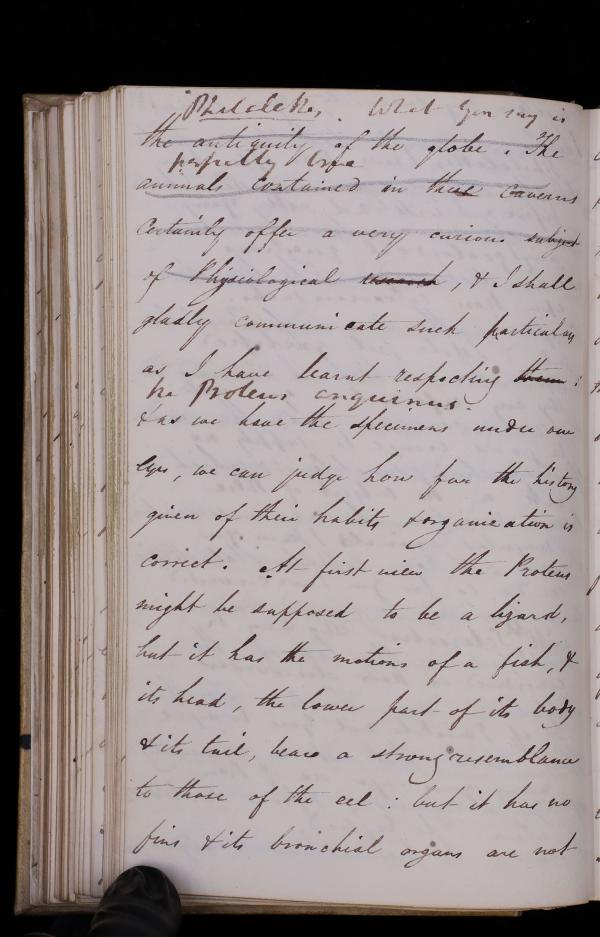 Philaleths, What you say is
the antiquity of the globe. The
perfectly true
animals contained in these caverns
certainly offer a very curious subject
of Physiological research, & I shall
gladly communicate such particulars
as I have learnt respecting them:
the Proteus anguinus.
& as we have the specimens under our
eyes, we can judge how far the history
given of their habits & organization is
correct. At first view the Proteus
might be supposed to be a lizard,
but it has the motions of a fish, &
its head, the lower part of its body
& its tail, bear a strong resemblance
to those of the eel: but it has no
fins & its bronchial organs are not